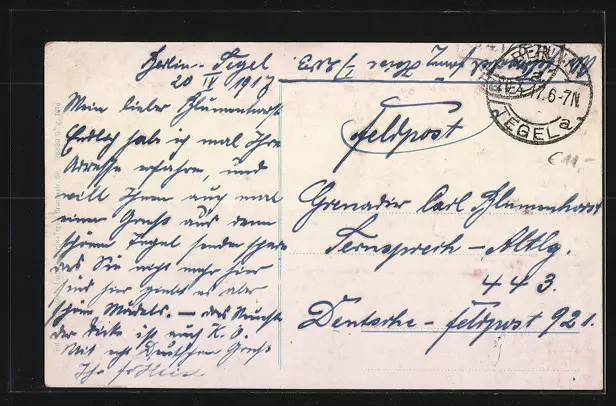 Berlin-Tegel
20 IV 1917
Mein lieber Blumenhorst
Endlich habe ich mal Ihre
Adresse erfahren, und
will Ihnen auch mal
einen Gruß aus dem
schönen Tegel senden schade
das Sie nicht mehr hier
sind hier giebt es aber
schöne Mädels. – das
der Dicke ist auch K.O.
Mit echt Deutschem Gruß
Ihr
BERLIN
4.17.6-7N
TEGEL a
Feldpost
€ 11,-
Grenadier Carl Blumenhorst
Fernsprech – Abtlg.
443.
Deutsche – Feldpost 921.